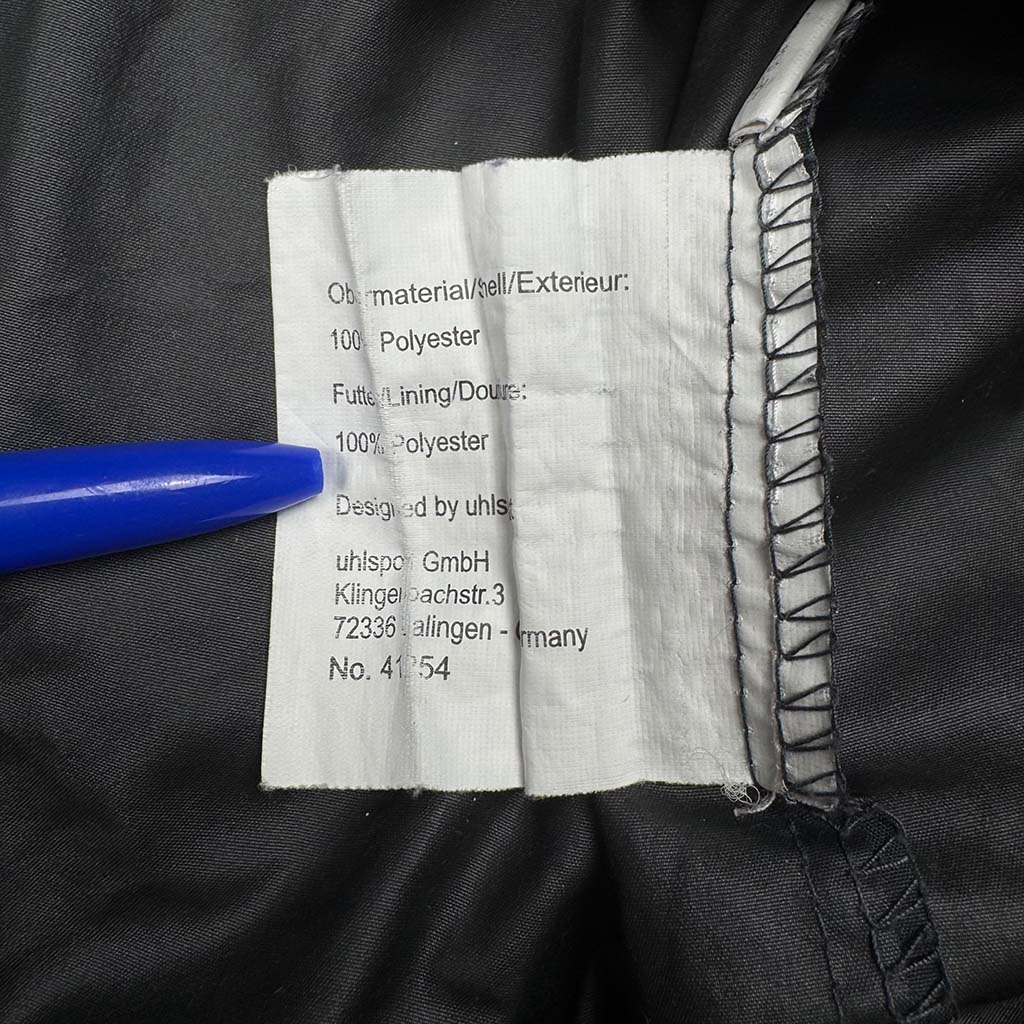 Obermaterial/Shell/Exterieur:
100% Polyester
Futter/Lining/Doublure:
100% Polyester
Designed by uhlsport
uhlsport GmbH
Klingenbachstr.3
72336 Balingen - Germany
No.